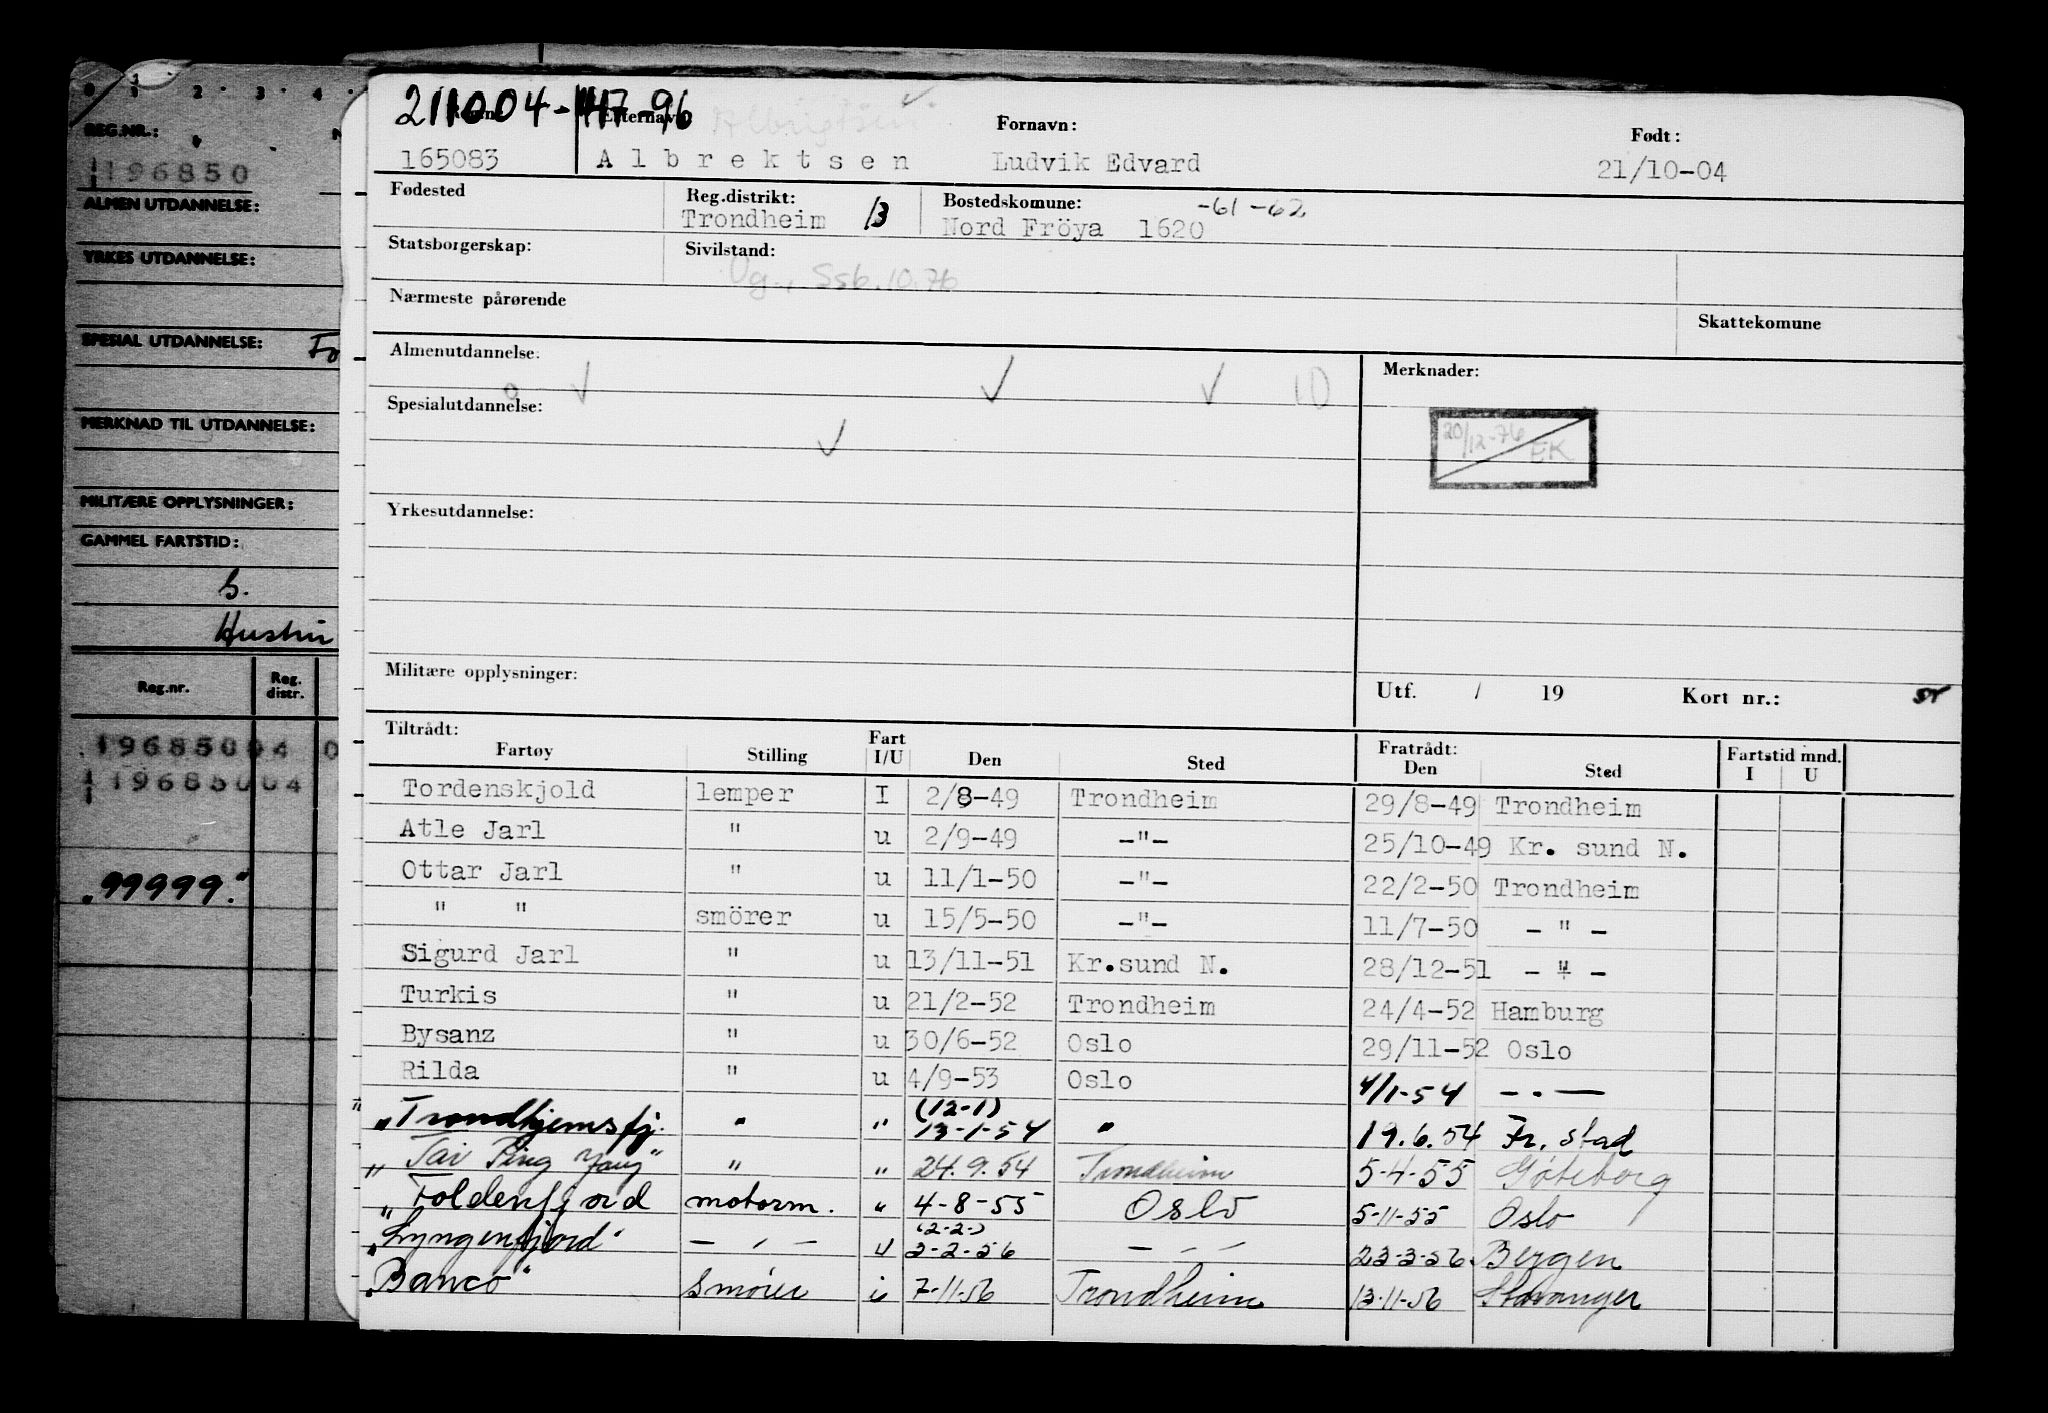 0 1 2 3 4
REG.NR.:
196850
ALMEN UTDANNELSE:
YRKES UTDANNELSE:
SPESIAL UTDANNELSE:
MERKNAD TIL UTDANNELSE:
MILITÆRE OPPLYSNINGER:
GAMMEL FARTSTID:
S.
Hustru
Reg.nr. Reg. distr.
19685004 0
19685004
"99999."
211004-117-96 Albrigtsen
Etternavn Fornavn: Født:
165083 Albrektsen Ludvik Edvard 21/10-04
Fødested Reg.distrikt: Bostedskomune: -61 -62
Trondheim 13 Nord Fröya 1620
Statsborgerskap: Sivilstand:
Ug., Ssb. 10.76
Nærmeste pårørende Skattekomune
Almenutdannelse: Merknader:
0 10
Spesialutdannelse:
20/12-76 EK
Yrkesutdannelse:
Militære opplysninger:
Utf. / 19 Kort nr.:
Tiltrådt: Fart Fratrådt: Fartstid mnd.
Fartøy Stilling I/U Den Sted Den Sted I U
Tordenskjold lemper I 2/8-49 Trondheim 29/8-49 Trondheim
Atle Jarl " u 2/9-49 -"- 25/10-49 Kr. sund N.
Ottar Jarl " u 11/1-50 -"- 22/2-50 Trondheim
" " smörer u 15/5-50 -"- 11/7-50 - " -
Sigurd Jarl " u 13/11-51 Kr.sund N. 28/12-51 - " -
Turkis " u 21/2-52 Trondheim 24/4-52 Hamburg
Bysanz " u 30/6-52 Oslo 29/11-52 Oslo
Rilda " u 4/9-53 Oslo 4/1-54 - " -
(12-1)
"Trondhjemsfj. " " 13-1-54 " 19.6.54 Fr. stad
"Tai Ping Yang" " " 24.9.54 Trondheim 5-4-55 Göteborg
"Foldenfjord motorm. " 4-8-55 Oslo 5-11-55 Oslo
(2-2-)
"Lyngenfjord" - " - u 3-2-56 - " - 23-3-56 Bergen
"Banco" Smörer i 7-11-56 Trondheim 13-11-56 Stavanger